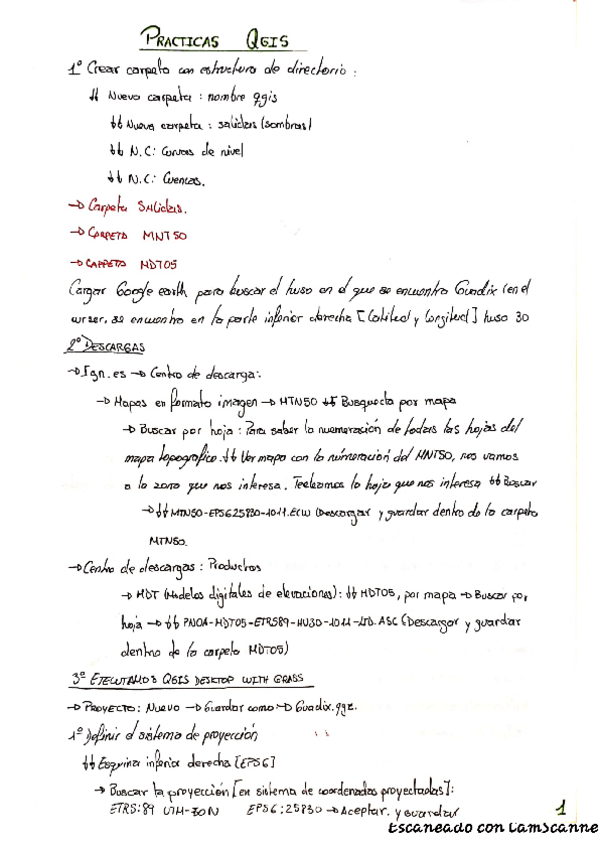 PRACTICAS QGIS
1º Crear carpeta con estructura de directorio:
↓↓ Nueva carpeta: nombre qgis
↓↓ Nueva carpeta: salidas (sombras)
↓↓ N.C: Curvas de nivel
↓↓ N.C: Cuencas.
→ Carpeta Salidas.
→ CARPETA MNT50
→ CARPETA MDT05
Cargar Google earth para buscar el huso en el que se encuentra Guadix (en el
cursor, se encuentra en la parte inferior derecha [latitud y longitud] huso 30
2º DESCARGAS
→ Ign.es → Centro de descarga:
→ Mapas en formato imagen → MTN50 ↓↓ Busqueda por mapa
→ Buscar por hoja: Para saber la numeración de todas las hojas del
mapa topografico. ↓↓ Ver mapa con la númeración del MNT50, nos vamos
a la zona que nos interesa. Tecleamos la hoja que nos interesa ↓↓ Buscar
→ ↓↓ MTN50-EPSG25830-1011.ECW (Descargar y guardar dentro de la carpeta
MTN50.
→ Centro de descargas: Productos
→ MDT (Modelos digitales de elevaciones): ↓↓ MDT05, por mapa → Buscar por
hoja → ↓↓ PNOA-MDT05-ETRS89-HU30-1011-LID.ASC (Descargar y guardar
dentro de la carpeta MDT05)
3º EJECUTAMOS QGIS DESKTOP WITH GRASS
→ PROYECTO: NUEVO → Guardar como → Guadix.qgz.
1º Definir el sistema de proyección
↓↓ Esquina inferior derecha [EPSG]
→ Buscar la proyección [en sistema de coordenadas proyectadas]:
ETRS:89 UTM-30N EPSG:25830 → Aceptar. y guardar
1
Escaneado con CamScanne